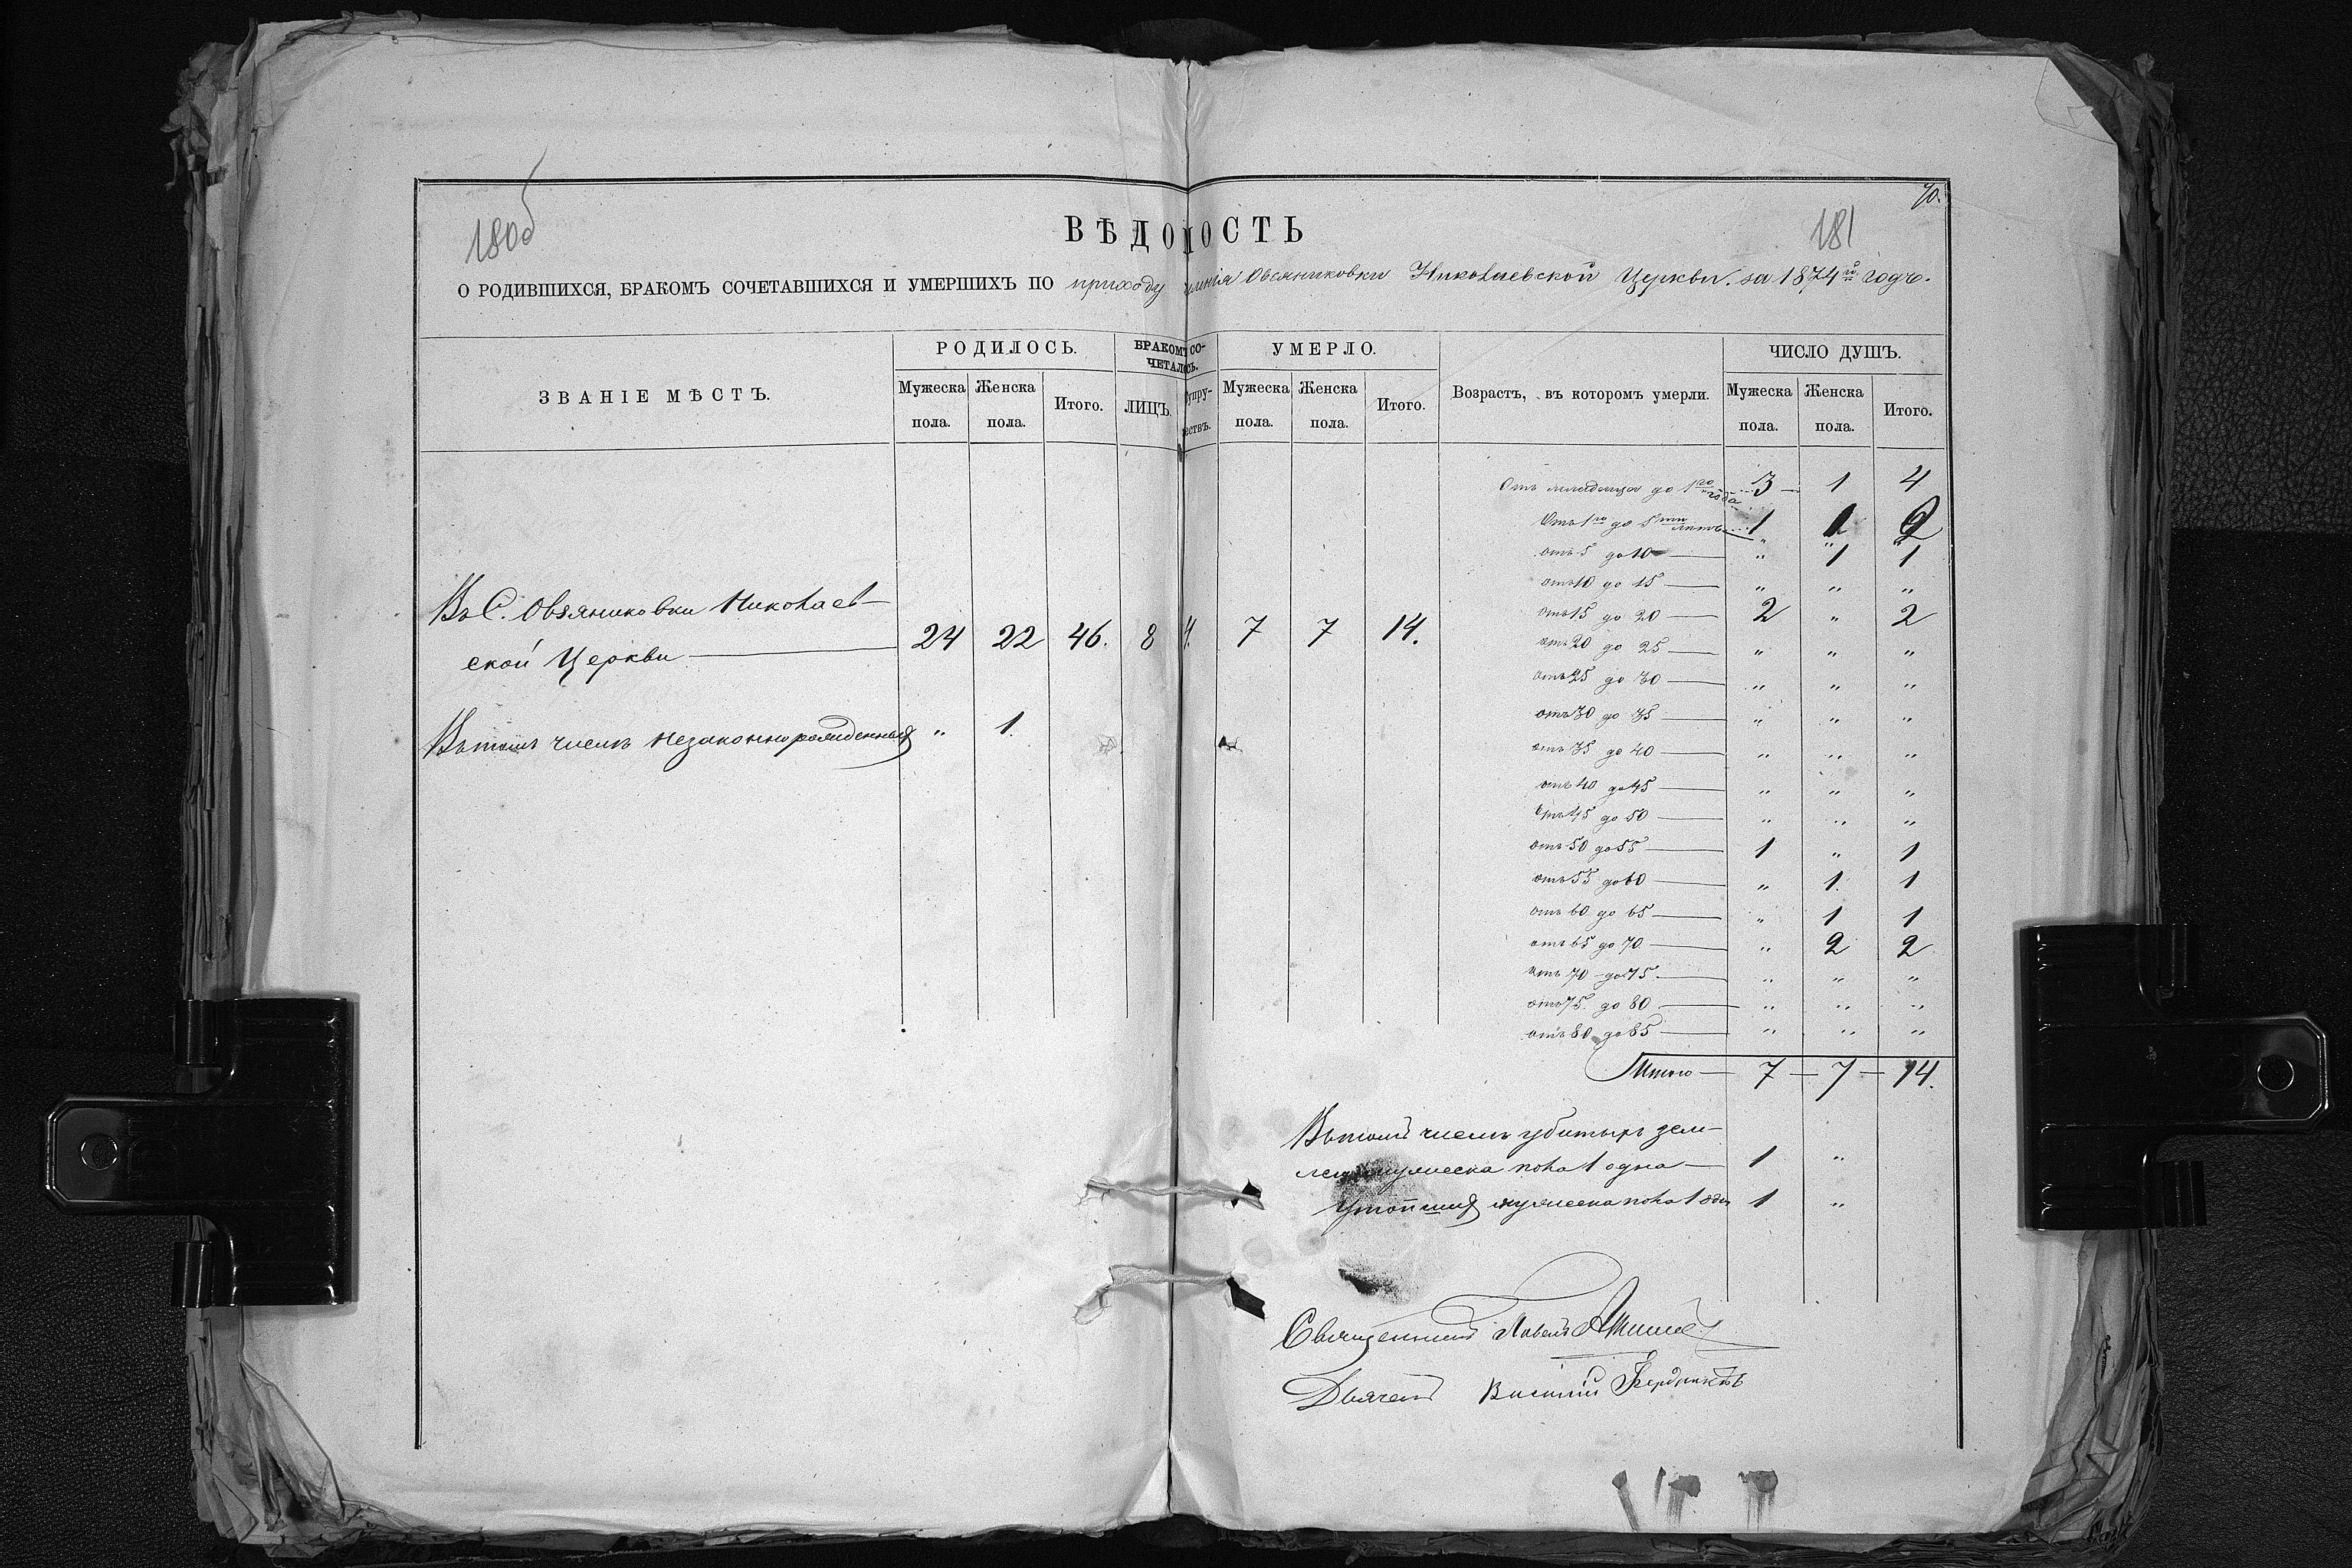 180б
181
70.
ВѢДОМОСТЬ
О РОДИВШИХСЯ, БРАКОМЪ СОЧЕТАВШИХСЯ И УМЕРШИХЪ ПО приходу Овсяниковки Николаевской Церкви. за 1874й годъ.
ЗВАНІЕ МѢСТЪ. РОДИЛОСЬ. БРАКОМЪ СО-ЧЕТАЛОСЬ. УМЕРЛО. Возрастъ, въ которомъ умерли. ЧИСЛО ДУШЪ.
Мужеска пола. Женска пола. Итого. ЛИЦЪ. Супру-жествъ. Мужеска пола. Женска пола. Итого. Мужеска пола. Женска пола. Итого.
Въ С. Овсяниковки Николаев-
ской Церкви 24 22 46. 8 4. 7 7 14.
Въ томъ числѣ незаконнорожденныя „ 1.
Отъ младенца до 1го года 3 1 4
Отъ 1го до 5ти лѣтъ 1 1 2
отъ 5 до 10 „ 1 1
отъ 10 до 15 „ „ „
отъ 15 до 20 2 „ 2
отъ 20 до 25 „ „ „
отъ 25 до 30 „ „ „
отъ 30 до 35 „ „ „
отъ 35 до 40 „ „ „
отъ 40 до 45 „ „ „
отъ 45 до 50 „ „ „
отъ 50 до 55 1 „ 1
отъ 55 до 60 „ 1. 1
отъ 60 до 65 „ 1 1
отъ 65 до 70 „ 2 2
отъ 70 до 75 „ „ „
отъ 75 до 80 „ „ „
отъ 80 до 85 „ „ „
Итого — 7 — 7 — 14.
Въ томъ числѣ убитыхъ зем-
лею мужеска пола 1 одна — 1 „
Утопшия мужеска пола 1 1 „
Священникъ Павелъ
Дьячекъ Василій